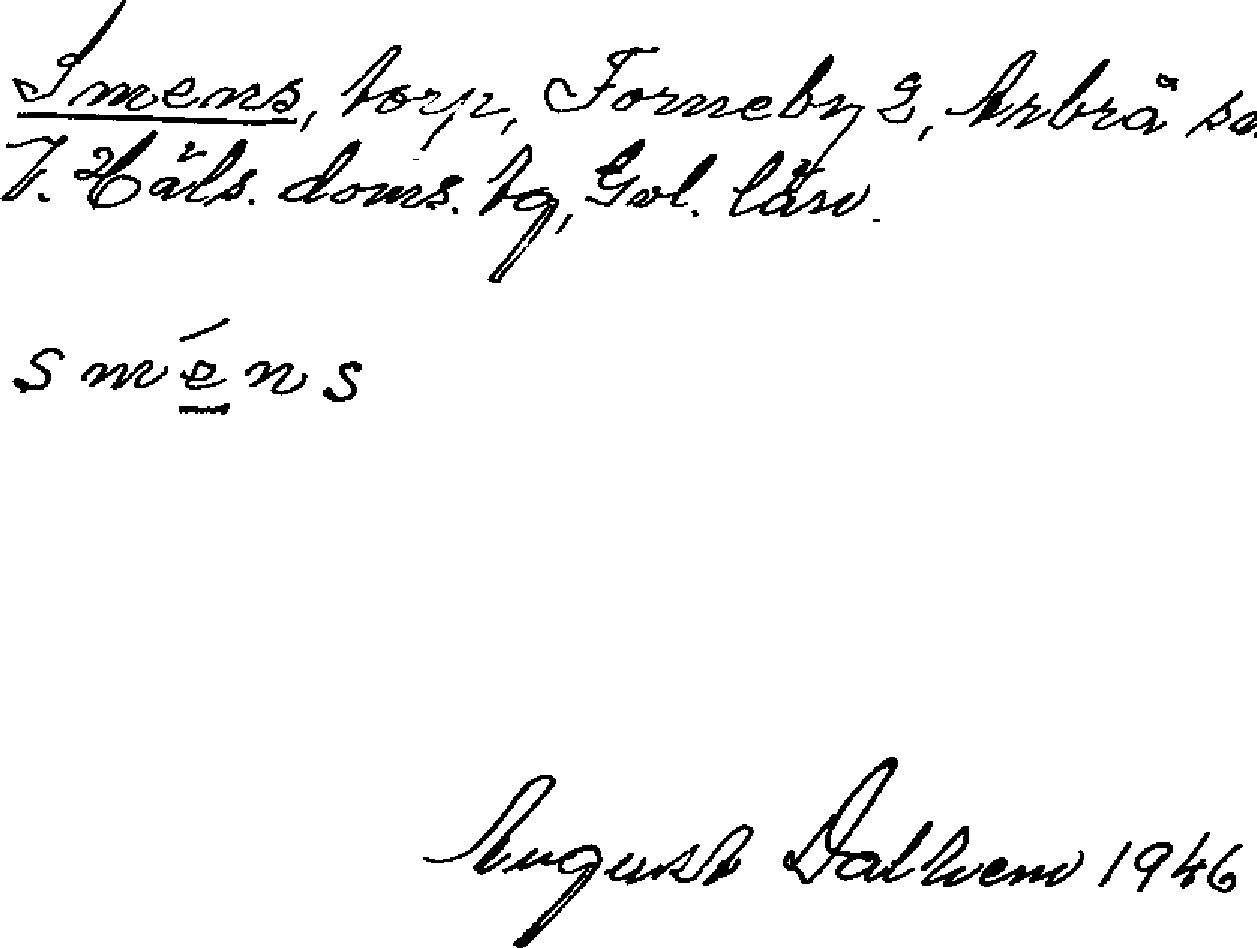 Smens, torp, Forneby 2, Arbrå sn
V. Häls. doms. tg, Gvl. län.
sméns
August Dalhem 1946